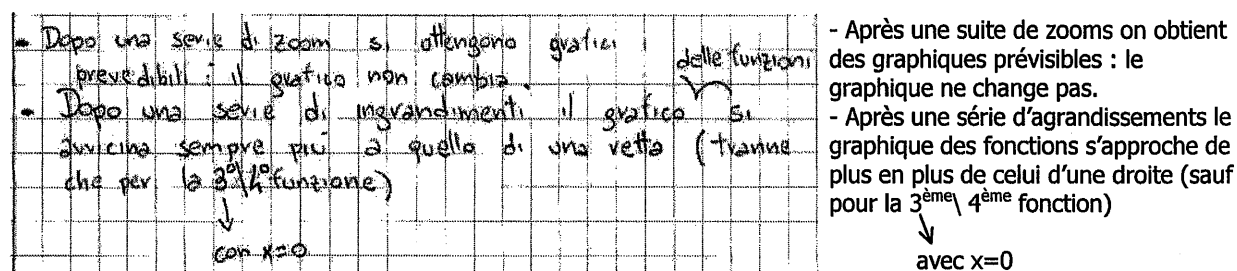 - Dopo una serie di zoom si ottengono grafici
prevedibili : il grafico non cambia.
delle funzioni
- Dopo una serie di ingrandimenti il grafico si
avvicina sempre più a quello di una retta (tranne
che per la 3º\4º funzione)
con x=0
- Après une suite de zooms on obtient
des graphiques prévisibles : le
graphique ne change pas.
- Après une série d’agrandissements le
graphique des fonctions s’approche de
plus en plus de celui d’une droite (sauf
pour la 3ème\ 4ème fonction)
avec x=0